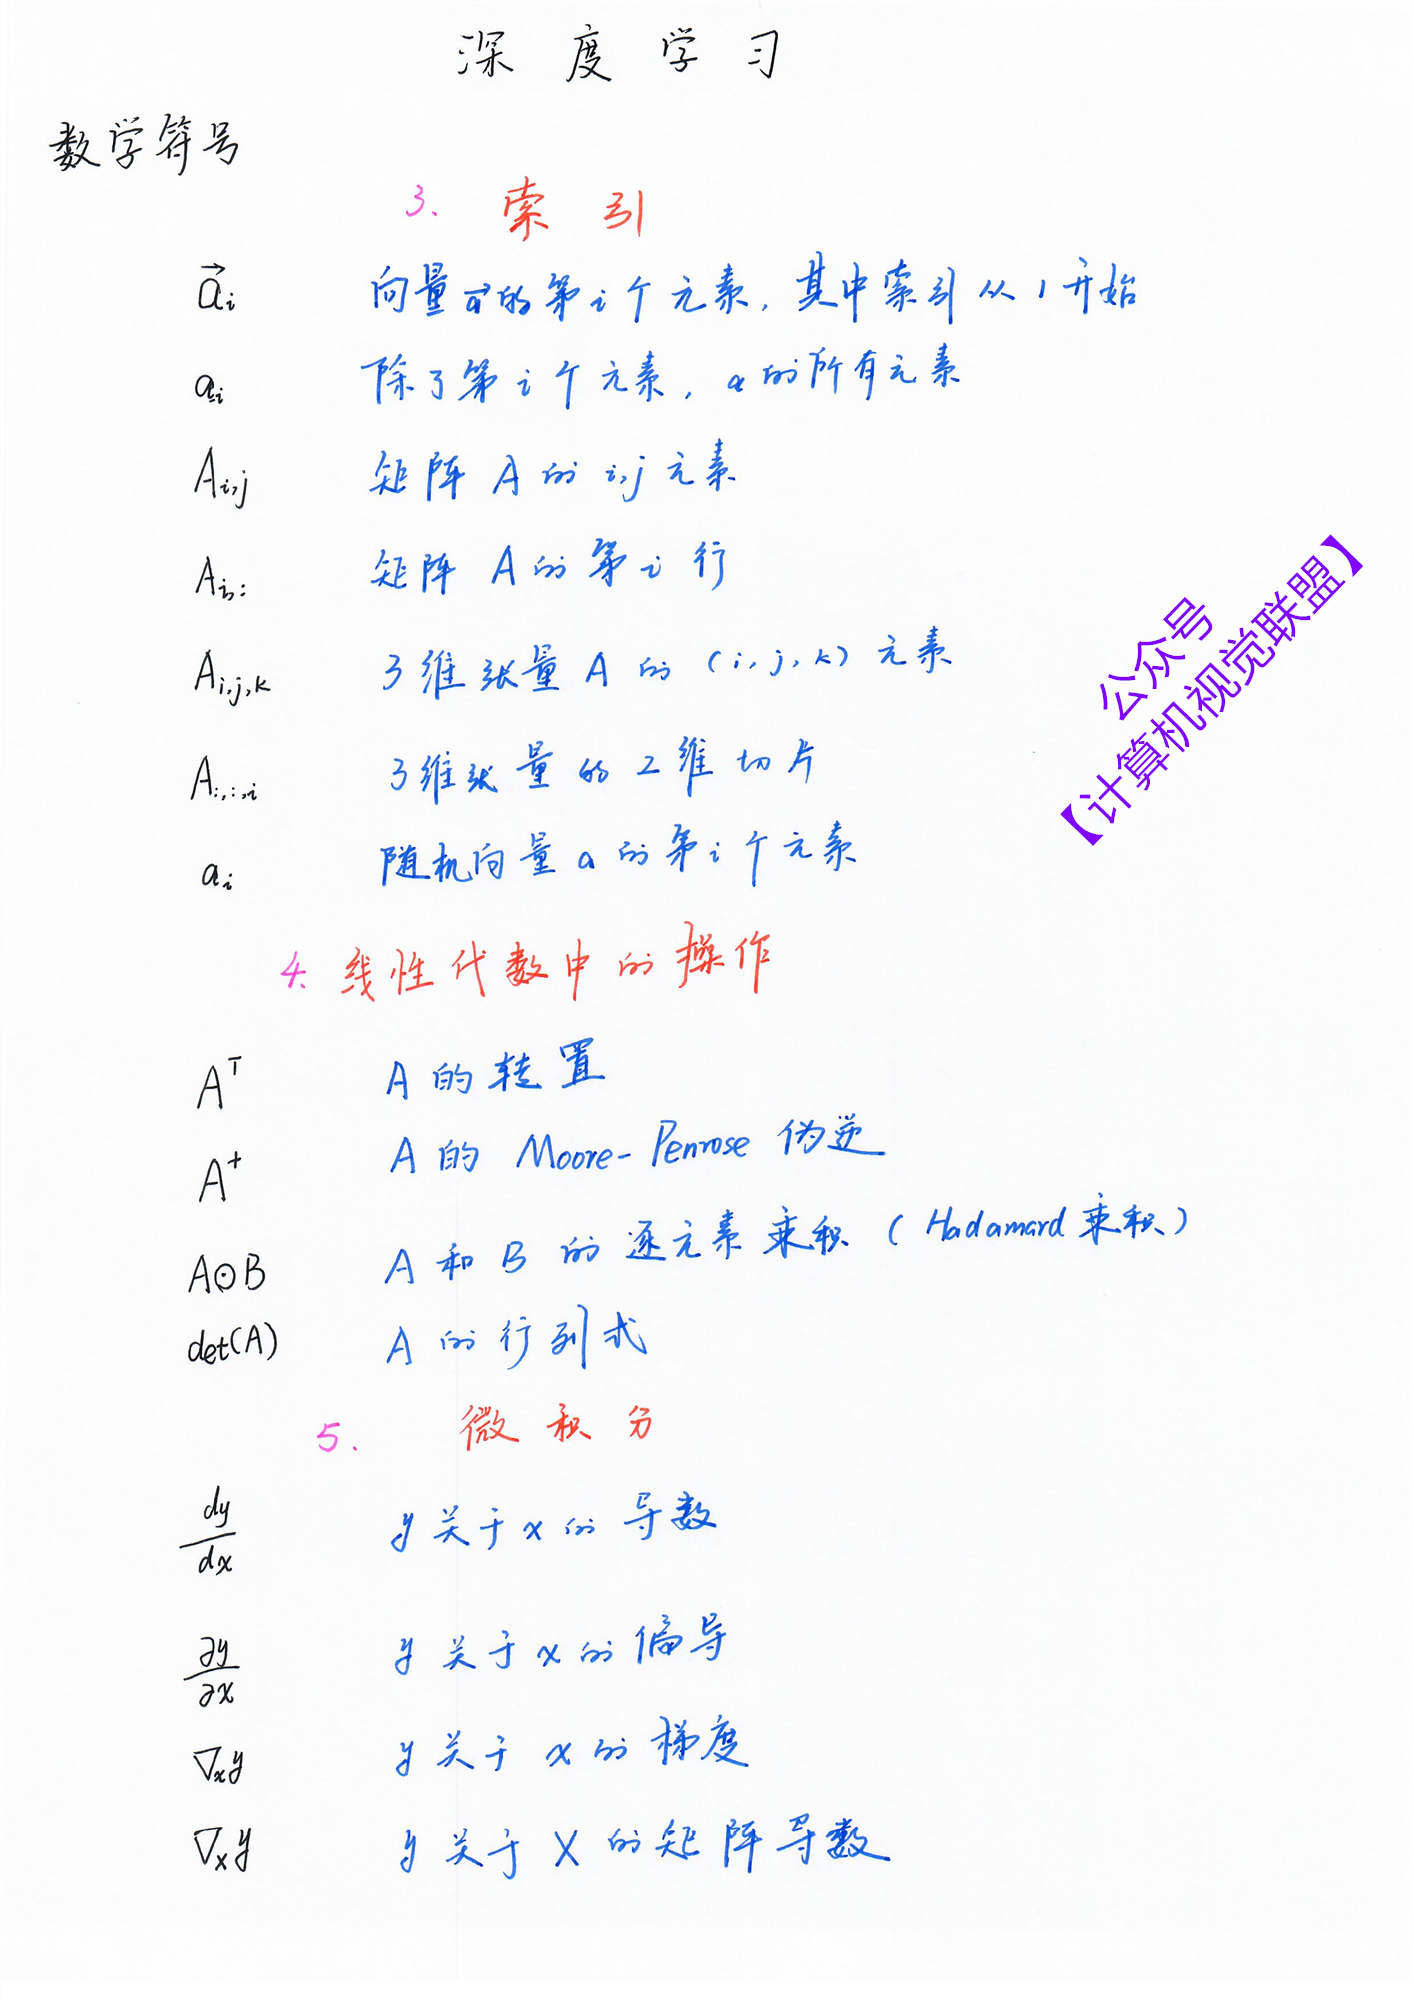 深度学习
数学符号
3. 索引
a⃗ᵢ 向量a⃗的第i个元素, 其中索引从1开始
a₋ᵢ 除了第i个元素, a的所有元素
Aᵢ,ⱼ 矩阵A的i,j元素
Aᵢ,: 矩阵A的第i行
Aᵢ,ⱼ,ₖ 3维张量A的(i,j,k)元素
A:,:,ᵢ 3维张量的2维切片
aᵢ 随机向量a的第i个元素
公众号
【计算机视觉联盟】
4. 线性代数中的操作
Aᵀ A的转置
A⁺ A的Moore-Penrose伪逆
A⊙B A和B的逐元素乘积(Hadamard乘积)
det(A) A的行列式
5. 微积分
dy/dx y关于x的导数
∂y/∂x y关于x的偏导
∇ₓy y关于x的梯度
∇_X y y关于X的矩阵导数